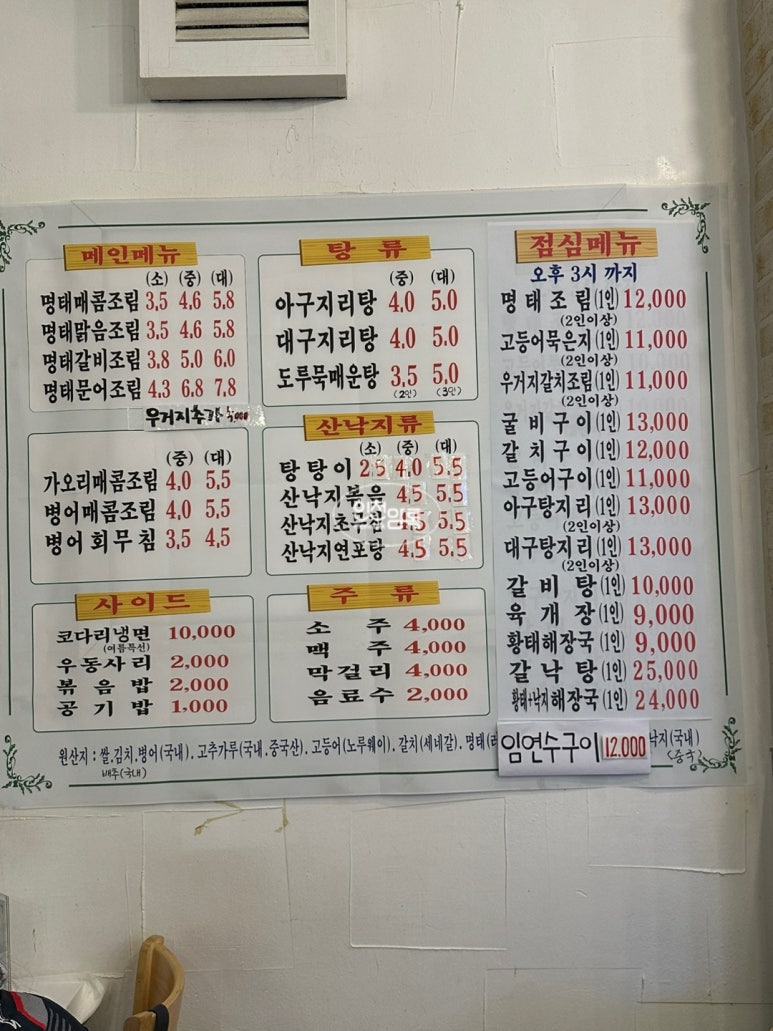 메인메뉴
(소) (중) (대)
명태매콤조림 3.5 4.6 5.8
명태맑음조림 3.5 4.6 5.8
명태갈비조림 3.8 5.0 6.0
명태문어조림 4.3 6.8 7.8
우거지추가
(중) (대)
가오리매콤조림 4.0 5.5
병어매콤조림 4.0 5.5
병어회무침 3.5 4.5
사이드
코다리냉면 10,000
(여름특선)
우동사리 2,000
볶음밥 2,000
공기밥 1,000
탕류
(중) (대)
아구지리탕 4.0 5.0
대구지리탕 4.0 5.0
도루묵매운탕 3.5 5.0
(2인) (3인)
산낙지류
(소) (중) (대)
탕탕이 2.5 4.0 5.5
산낙지볶음 4.5 5.5
산낙지초무침 4.5 5.5
산낙지연포탕 4.5 5.5
주류
소주 4,000
맥주 4,000
막걸리 4,000
음료수 2,000
점심메뉴
오후 3시 까지
명태조림(1인) 12,000
(2인이상)
고등어묵은지(1인) 11,000
(2인이상)
우거지갈치조림(1인) 11,000
(2인이상)
굴비구이(1인) 13,000
갈치구이(1인) 12,000
고등어구이(1인) 11,000
아구탕지리(1인) 13,000
(2인이상)
대구탕지리(1인) 13,000
(2인이상)
갈비탕(1인) 10,000
육개장(1인) 9,000
황태해장국(1인) 9,000
갈낙탕(1인) 25,000
황태+낙지해장국(1인) 24,000
임연수구이 12.000
원산지 : 쌀.김치.병어(국내). 고추가루(국내.중국산). 고등어(노루웨이). 갈치(세네갈). 명태(러 낙지(국내)
배추(국내) (중국)